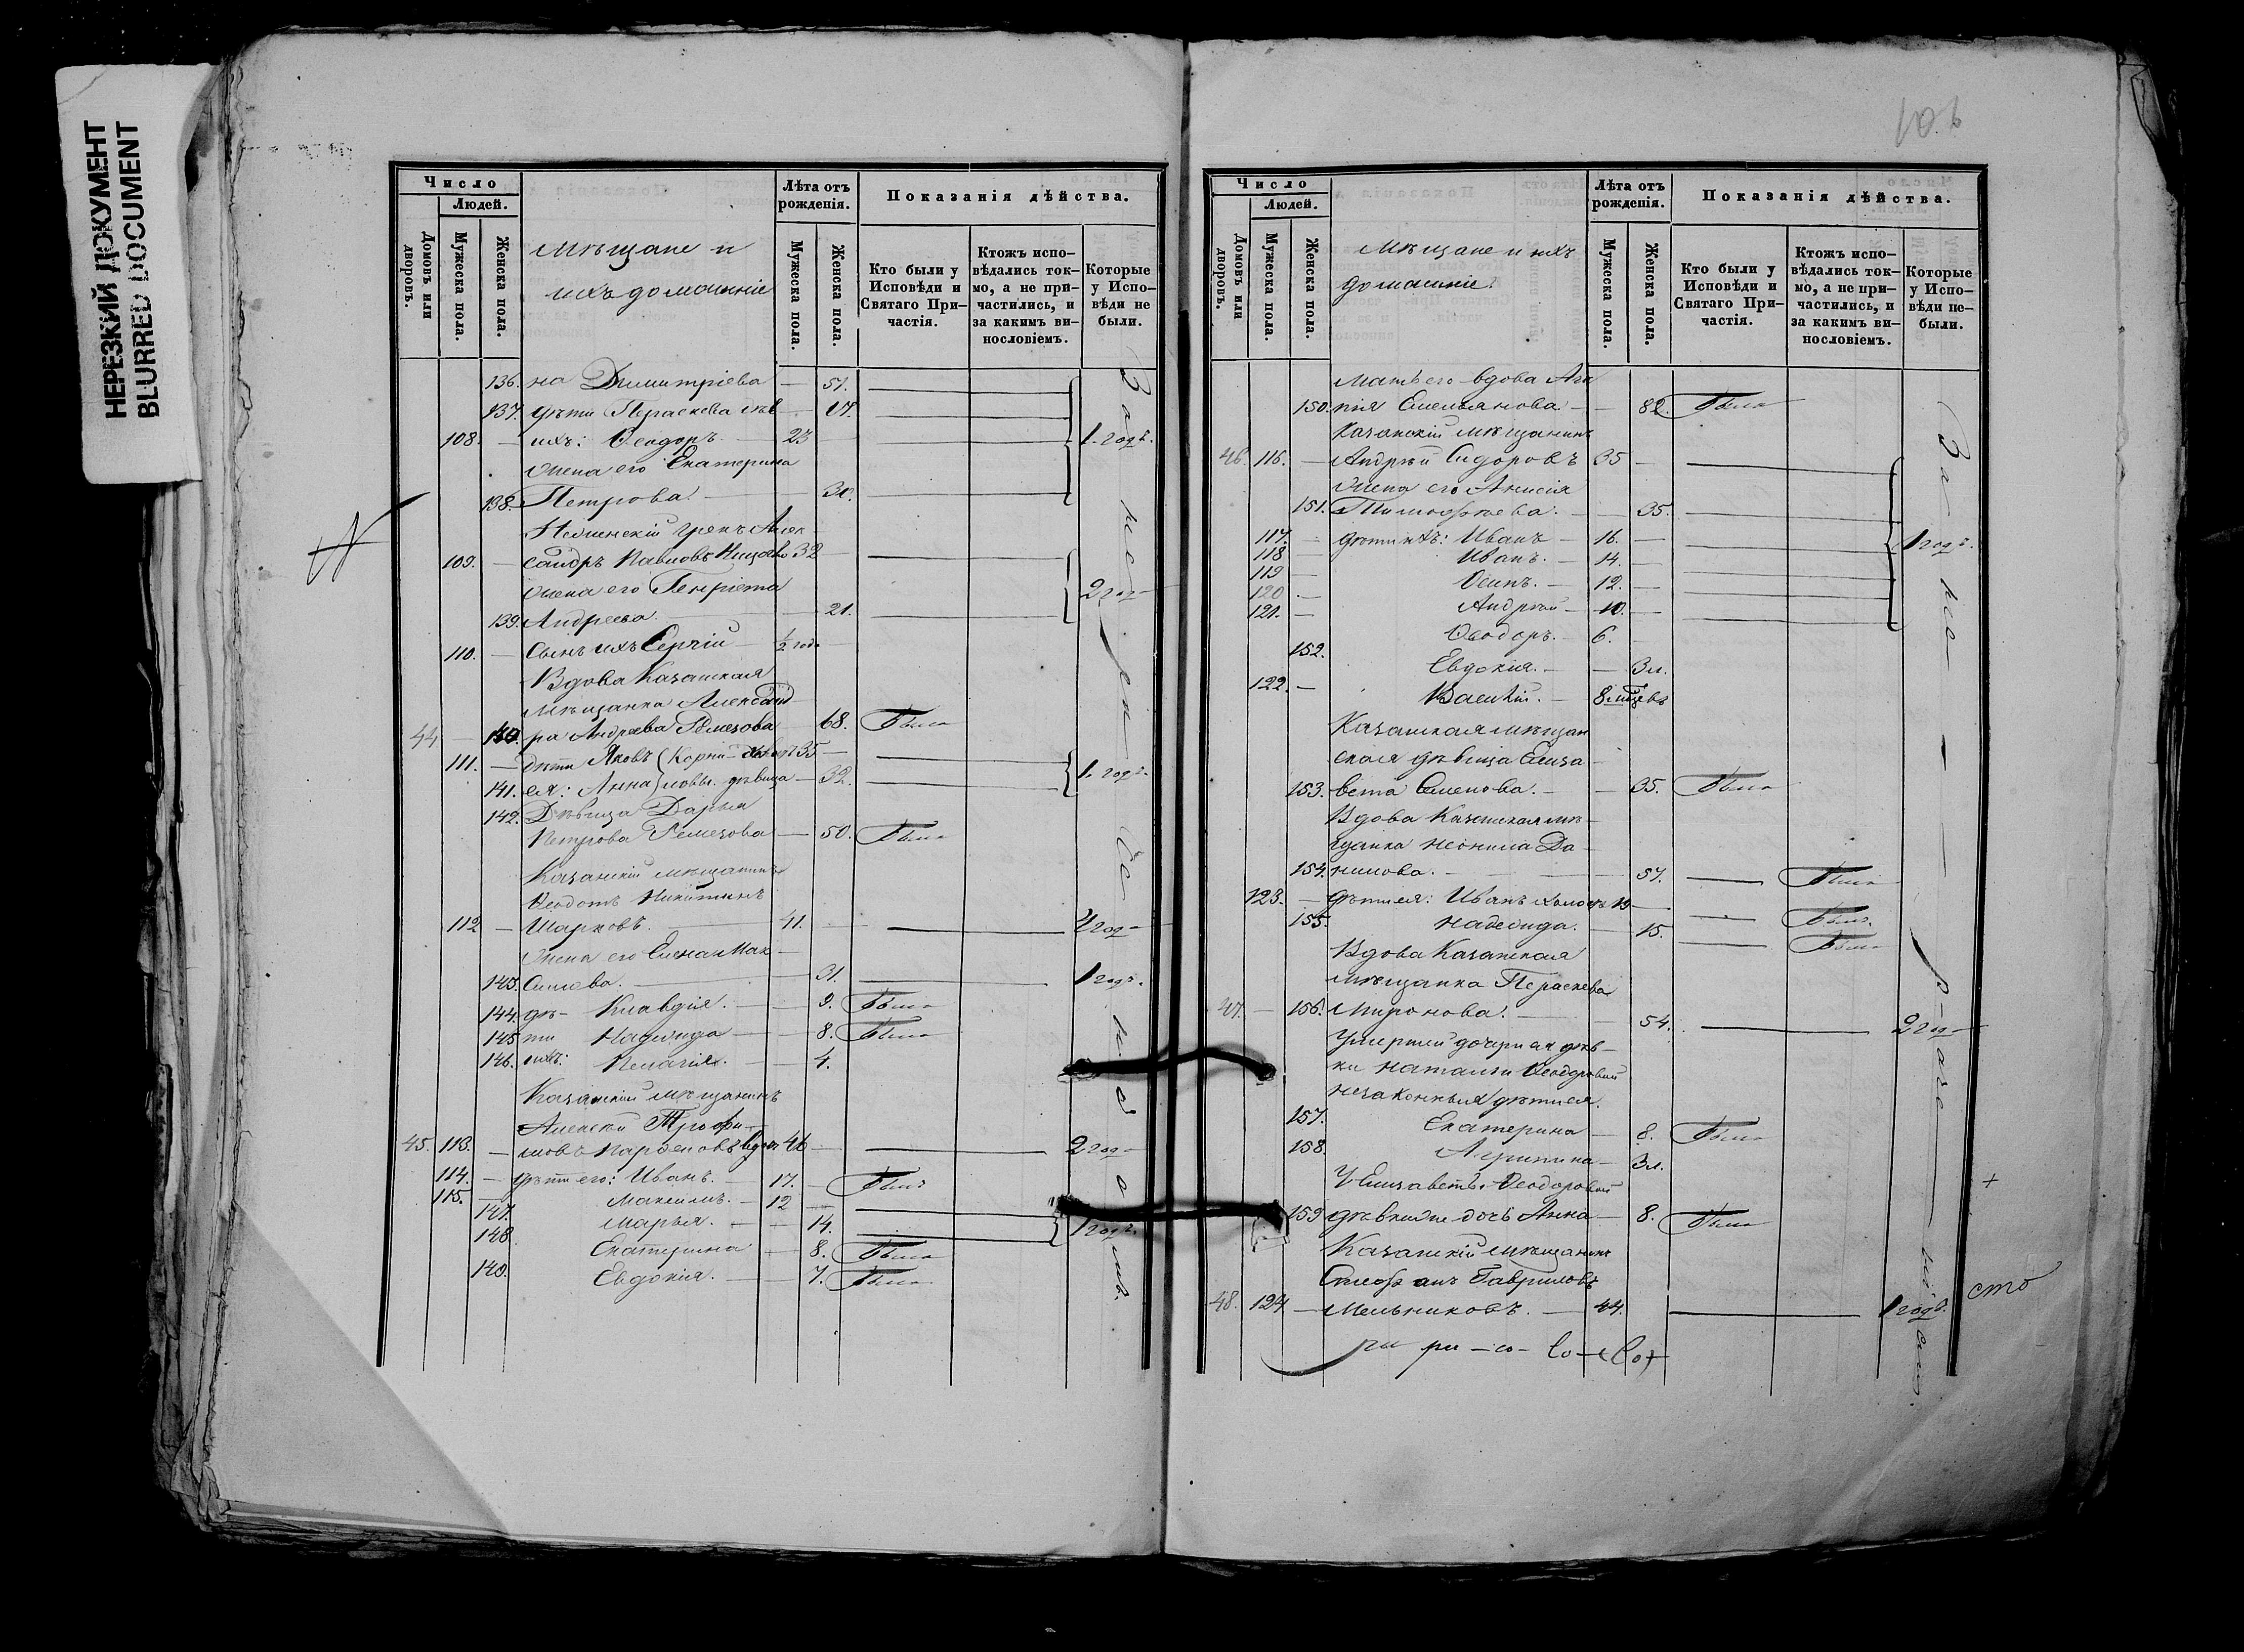 НЕРЕЗКИЙ ДОКУМЕНТ
BLURRED DOCUMENT
Число
Людей.
Домовъ или дворовъ.
Мужеска пола.
Женска пола.
Мѣщане и
ихъ домашніе
Лѣта отъ рожденія.
Мужеска пола.
Женска пола.
Показанія дѣйства.
Кто были у Исповѣди и Святаго Причастія.
Ктожъ исповѣдались токмо, а не причастились, и за какимъ винословіемъ.
Которые у Исповѣди не были.
136. на Димитріева — 51.
137. дѣти Параскева — 17.
108. — ихъ: Ѳеодоръ — 23 — 1. годъ.
Жена его Екатерина
138. Петрова — 30.
Нежинскій Грекъ Алек
109. — сандръ Павловъ 32 —
Жена его Генріета 2 год
139. Андреева. — 21.
110. — Сынъ ихъ Сергій — 1/2 года —
Вдова Казанская
мѣщанка Александ
44 — 140. ра Андреева Ремезова 68. Была
111. — дѣти Яковъ (Корни- холостъ 35 —
141. ея: Анна) ловы. дѣвица — 32. 1. годъ.
142. Дѣвица Дарья
Петрова Ремезова — 50. Была
Казанскій мѣщанинъ
Ѳеодотъ Никитинъ
112 — Шарковъ. — 41. 4 год
Жена его Елена Мак
143. симова. — 31. 1 годъ.
144. дѣ- Клавдія. — 9. Была
145 ти Надежда — 8. Была
146. ихъ: Пелагія. — 4.
Казанскій мѣщанинъ
Алексѣй Трофи
45. 113. — мовъ Парѳеновъ вдов 46 — 2 год
114. — дѣти его: Иванъ. — 17. — Былъ
115. — Максимъ. — 12 —
147. Марья. — 14. 1 годъ.
148. Екатерина — 8. Была
149. Евдокія. — 7. Была
За не ра
Число
Людей.
Домовъ или дворовъ.
Мужеска пола.
Женска пола.
Мѣщане и ихъ
домашніе.
Лѣта отъ рожденія.
Мужеска пола.
Женска пола.
Показанія дѣйства.
Кто были у Исповѣди и Святаго Причастія.
Ктожъ исповѣдались токмо, а не причастились, и за какимъ винословіемъ.
Которые у Исповѣди небыли.
Мать его вдова Ага
150. пія Емельянова — 82. Была
Казанскій мѣщанинъ
46. 116. — Андрей Сидоровъ 35 —
Жена его Анисія
151. Тимоѳеева. — 35.
117. — дѣти ихъ: Иванъ — 16. — 1 годъ.
118 — Иванъ. — 14. —
119 — Осипъ. — 12. —
120. — Андрей — 10. —
121. — Ѳеодоръ. — 6. —
152. Евдокія. — 3 л.
122. — Василій. — 8 мѣцевъ
Казанская мѣщан
ская дѣвица Елиза
153. вета Семенова. — 35. Была
Вдова Казанская мѣ-
щанка Неонила Да-
154. нилова. — 57. — Была
123. — дѣти ея: Иванъ холостъ 19 — Былъ.
155. Надежда. — 15. — Была
Вдова Казанская
мѣщанка Параскева
47. — 156. Миронова. — 54. 2 год
Умершей дочери ея дѣв-
ки Наталіи Ѳеодоровой
незаконныя дѣти ея.
157. Екатерина — 8. Была
158. Агрипина — 3 л.
У Елизаветы Ѳеодоровой
159 дѣвки же дочь Анна — 8. Была
Казанскій мѣщанинъ
Стефанъ Гавриловъ
48. 124 — Мельниковъ. — 44. 1 годъ.
За не
сто